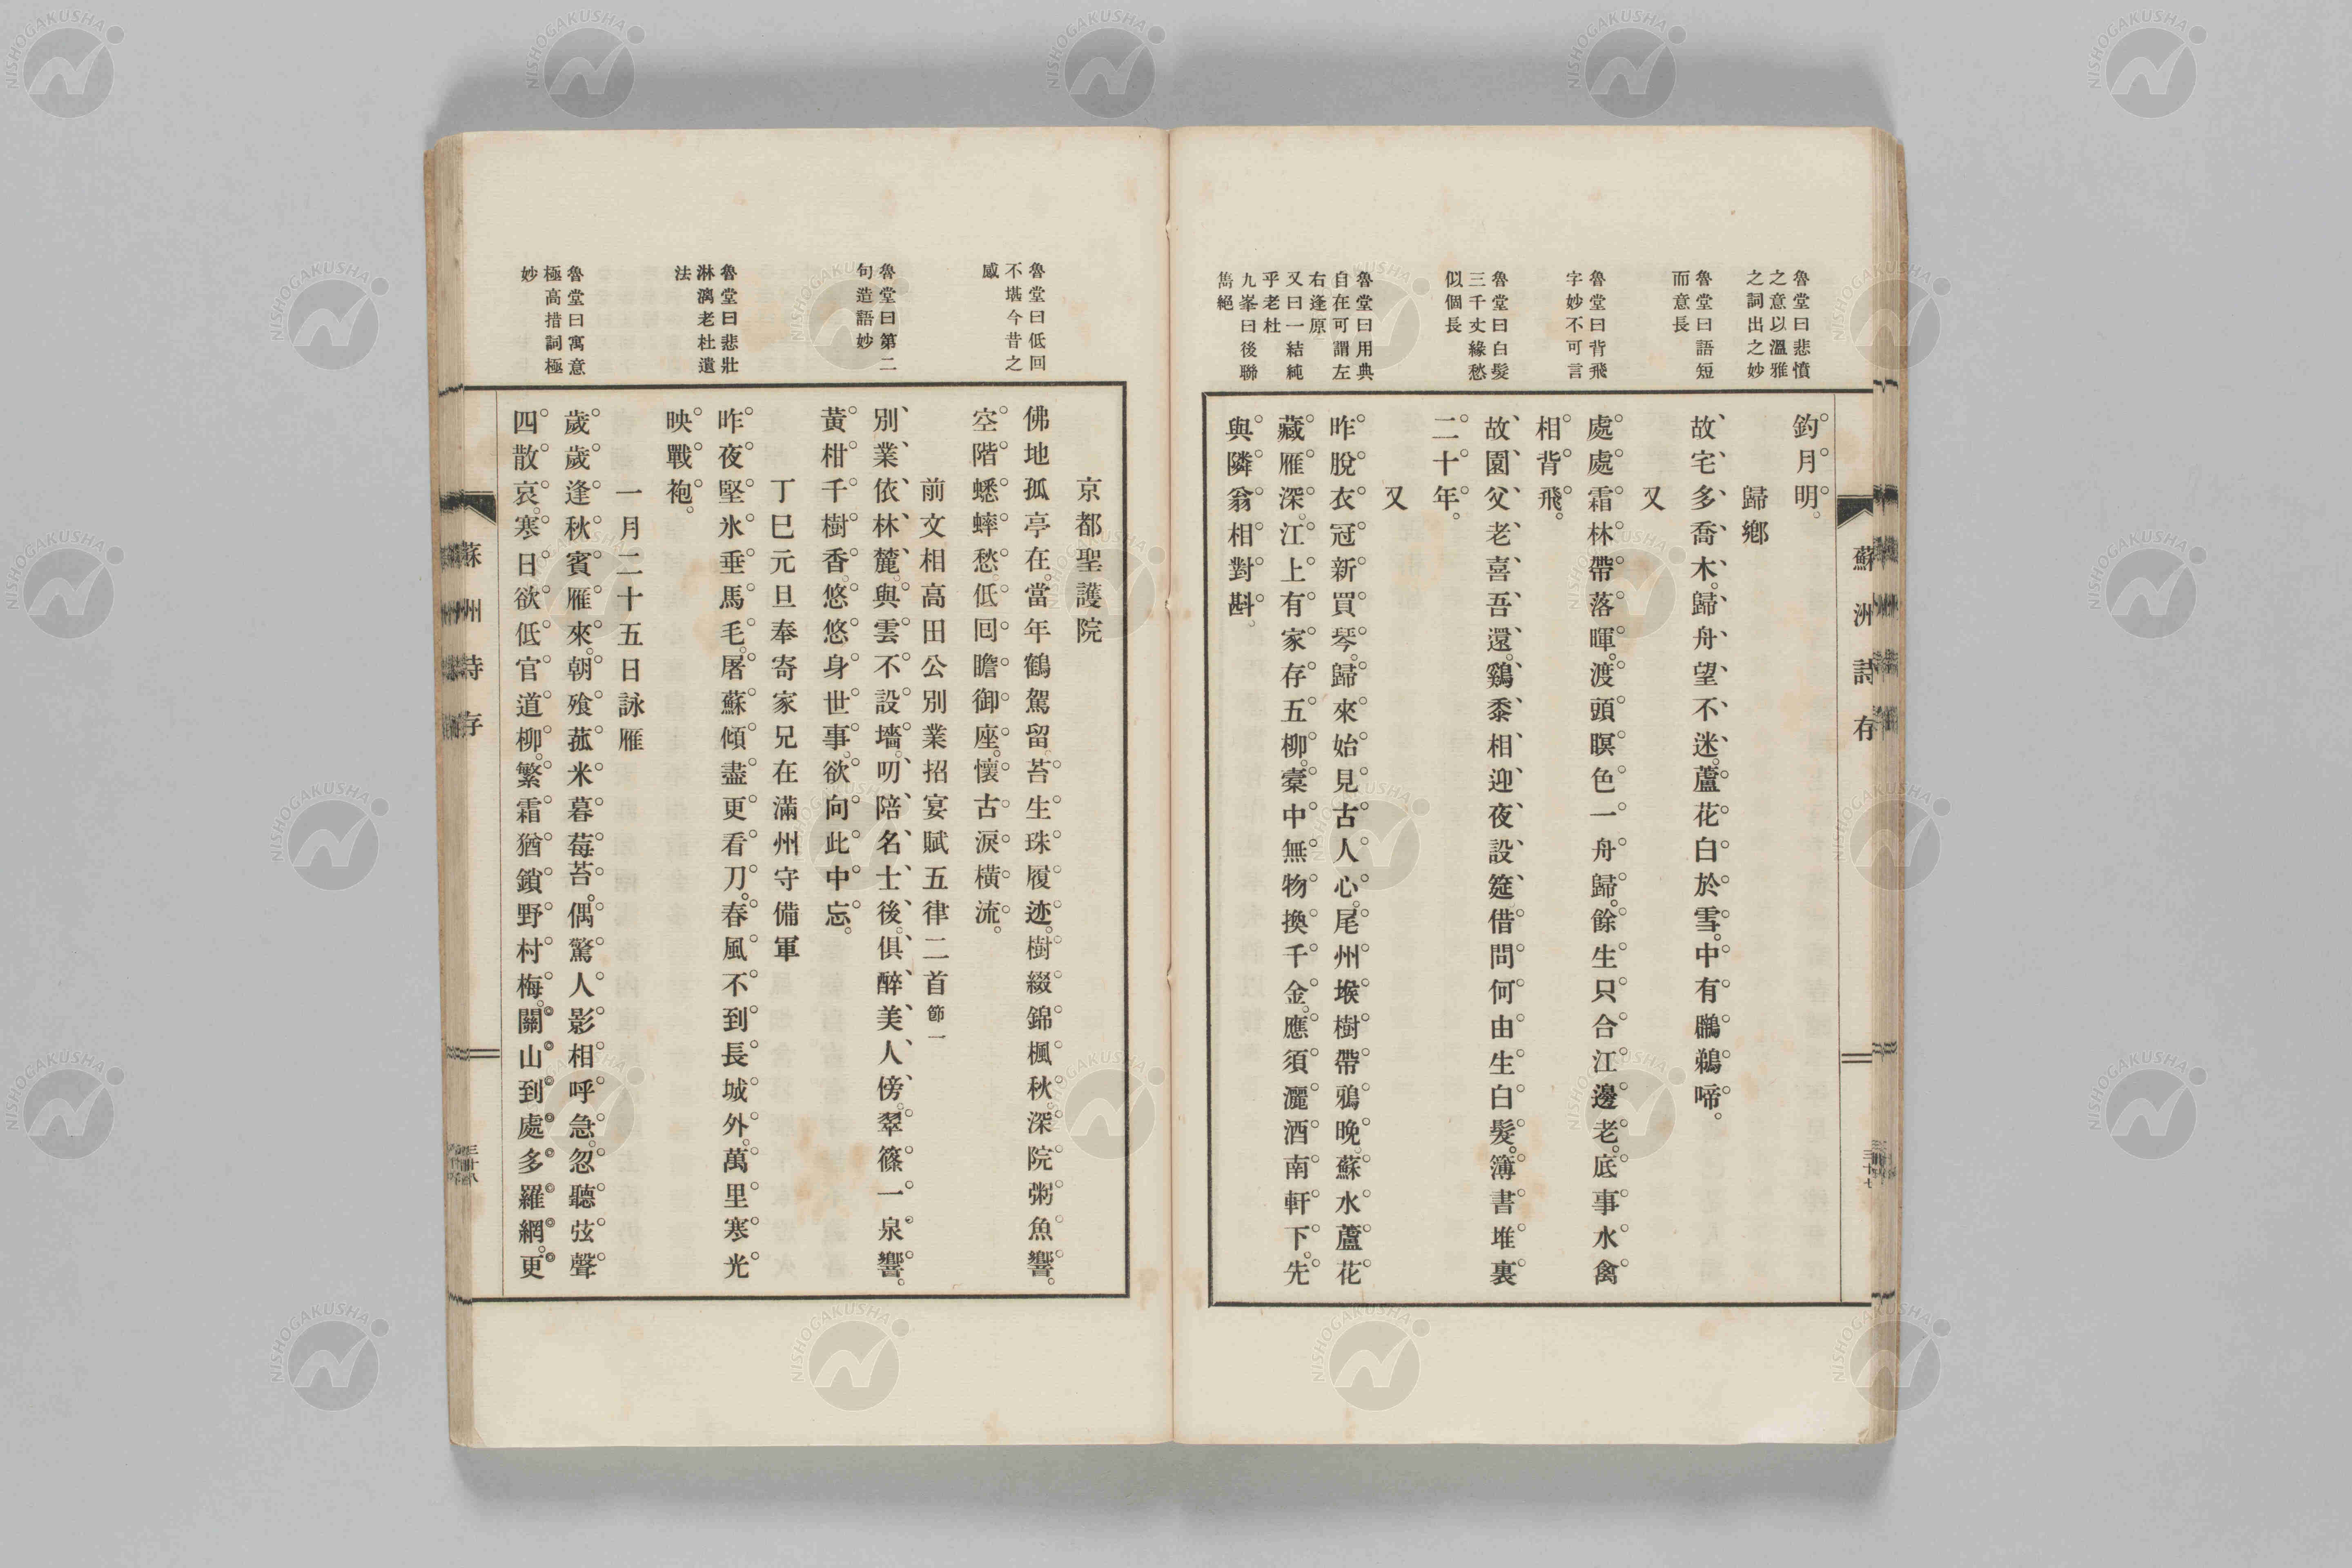 魯堂曰悲憤
之意以溫雅
之詞出之妙
魯堂曰語短
而意長
魯堂曰背飛
字妙不可言
魯堂曰白髮
三千丈緣愁
似個長
魯堂曰用典
自在可謂左
右逢原
又曰一結純
乎老杜
九峯曰後聯
雋絕
蘇洲詩存
三十七
釣月明。
歸鄉
故宅多喬木。歸舟望不迷。蘆花白於雪。中有鸊鵜啼。
又
處處霜林帶落暉。渡頭暝色一舟歸。餘生只合江邊老。底事水禽
相背飛。
故園父老喜吾還。鷄黍相迎夜設筵。借問何由生白髮。簿書堆裏
二十年。
又
昨脫衣冠新買琴。歸來始見古人心。尾州堠樹帶鴉晚。蘇水蘆花
藏雁深。江上有家存五柳。橐中無物換千金。應須灑酒南軒下。先
與隣翁相對斟。
魯堂曰低回
不堪今昔之
感
魯堂曰第二
句造語妙
魯堂曰悲壯
淋漓老杜遺
法
魯堂曰寓意
極高措詞極
妙
京都聖護院
佛地孤亭在。當年鶴駕留。苔生珠履迹。樹綴錦楓秋。深院粥魚響。
空階蟋蟀愁。低回瞻御座。懷古淚橫流。
前文相高田公別業招宴賦五律二首節一
別業依林麓。與雲不設墻。叨陪名士後。俱醉美人傍。翠篠一泉響。
黃柑千樹香。悠悠身世事。欲向此中忘。
丁巳元旦奉寄家兄在滿州守備軍
昨夜堅氷垂馬毛。屠蘇傾盡更看刀。春風不到長城外。萬里寒光
映戰袍。
一月二十五日詠雁
歲歲逢秋賓雁來。朝飱菰米暮莓苔。偶驚人影相呼急。忽聽弦聲
四散哀。寒日欲低官道柳。繁霜猶鎖野村梅。關山到處多羅網。更
蘇州詩存
三十八